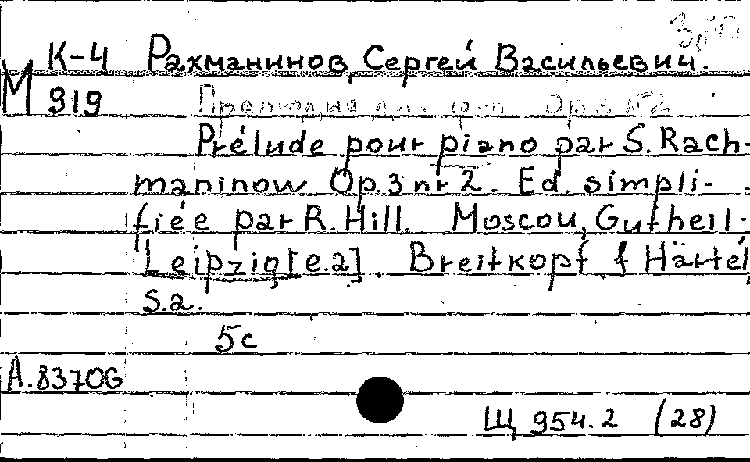 К-4 Рахманинов, Сергей Васильевич.
М 919
Прелюдия для ф-п. Op. 3 №2
Prélude pour piano par S. Rach-
maninow. Op. 3 nr 2. Ed. simpli-
fiée par R. Hill. Moscou, Gutheil.
Leipzig [e.a]. Breitkopf & Härtel,
s.a.
5c
А.83706
Щ 954.2 (28)